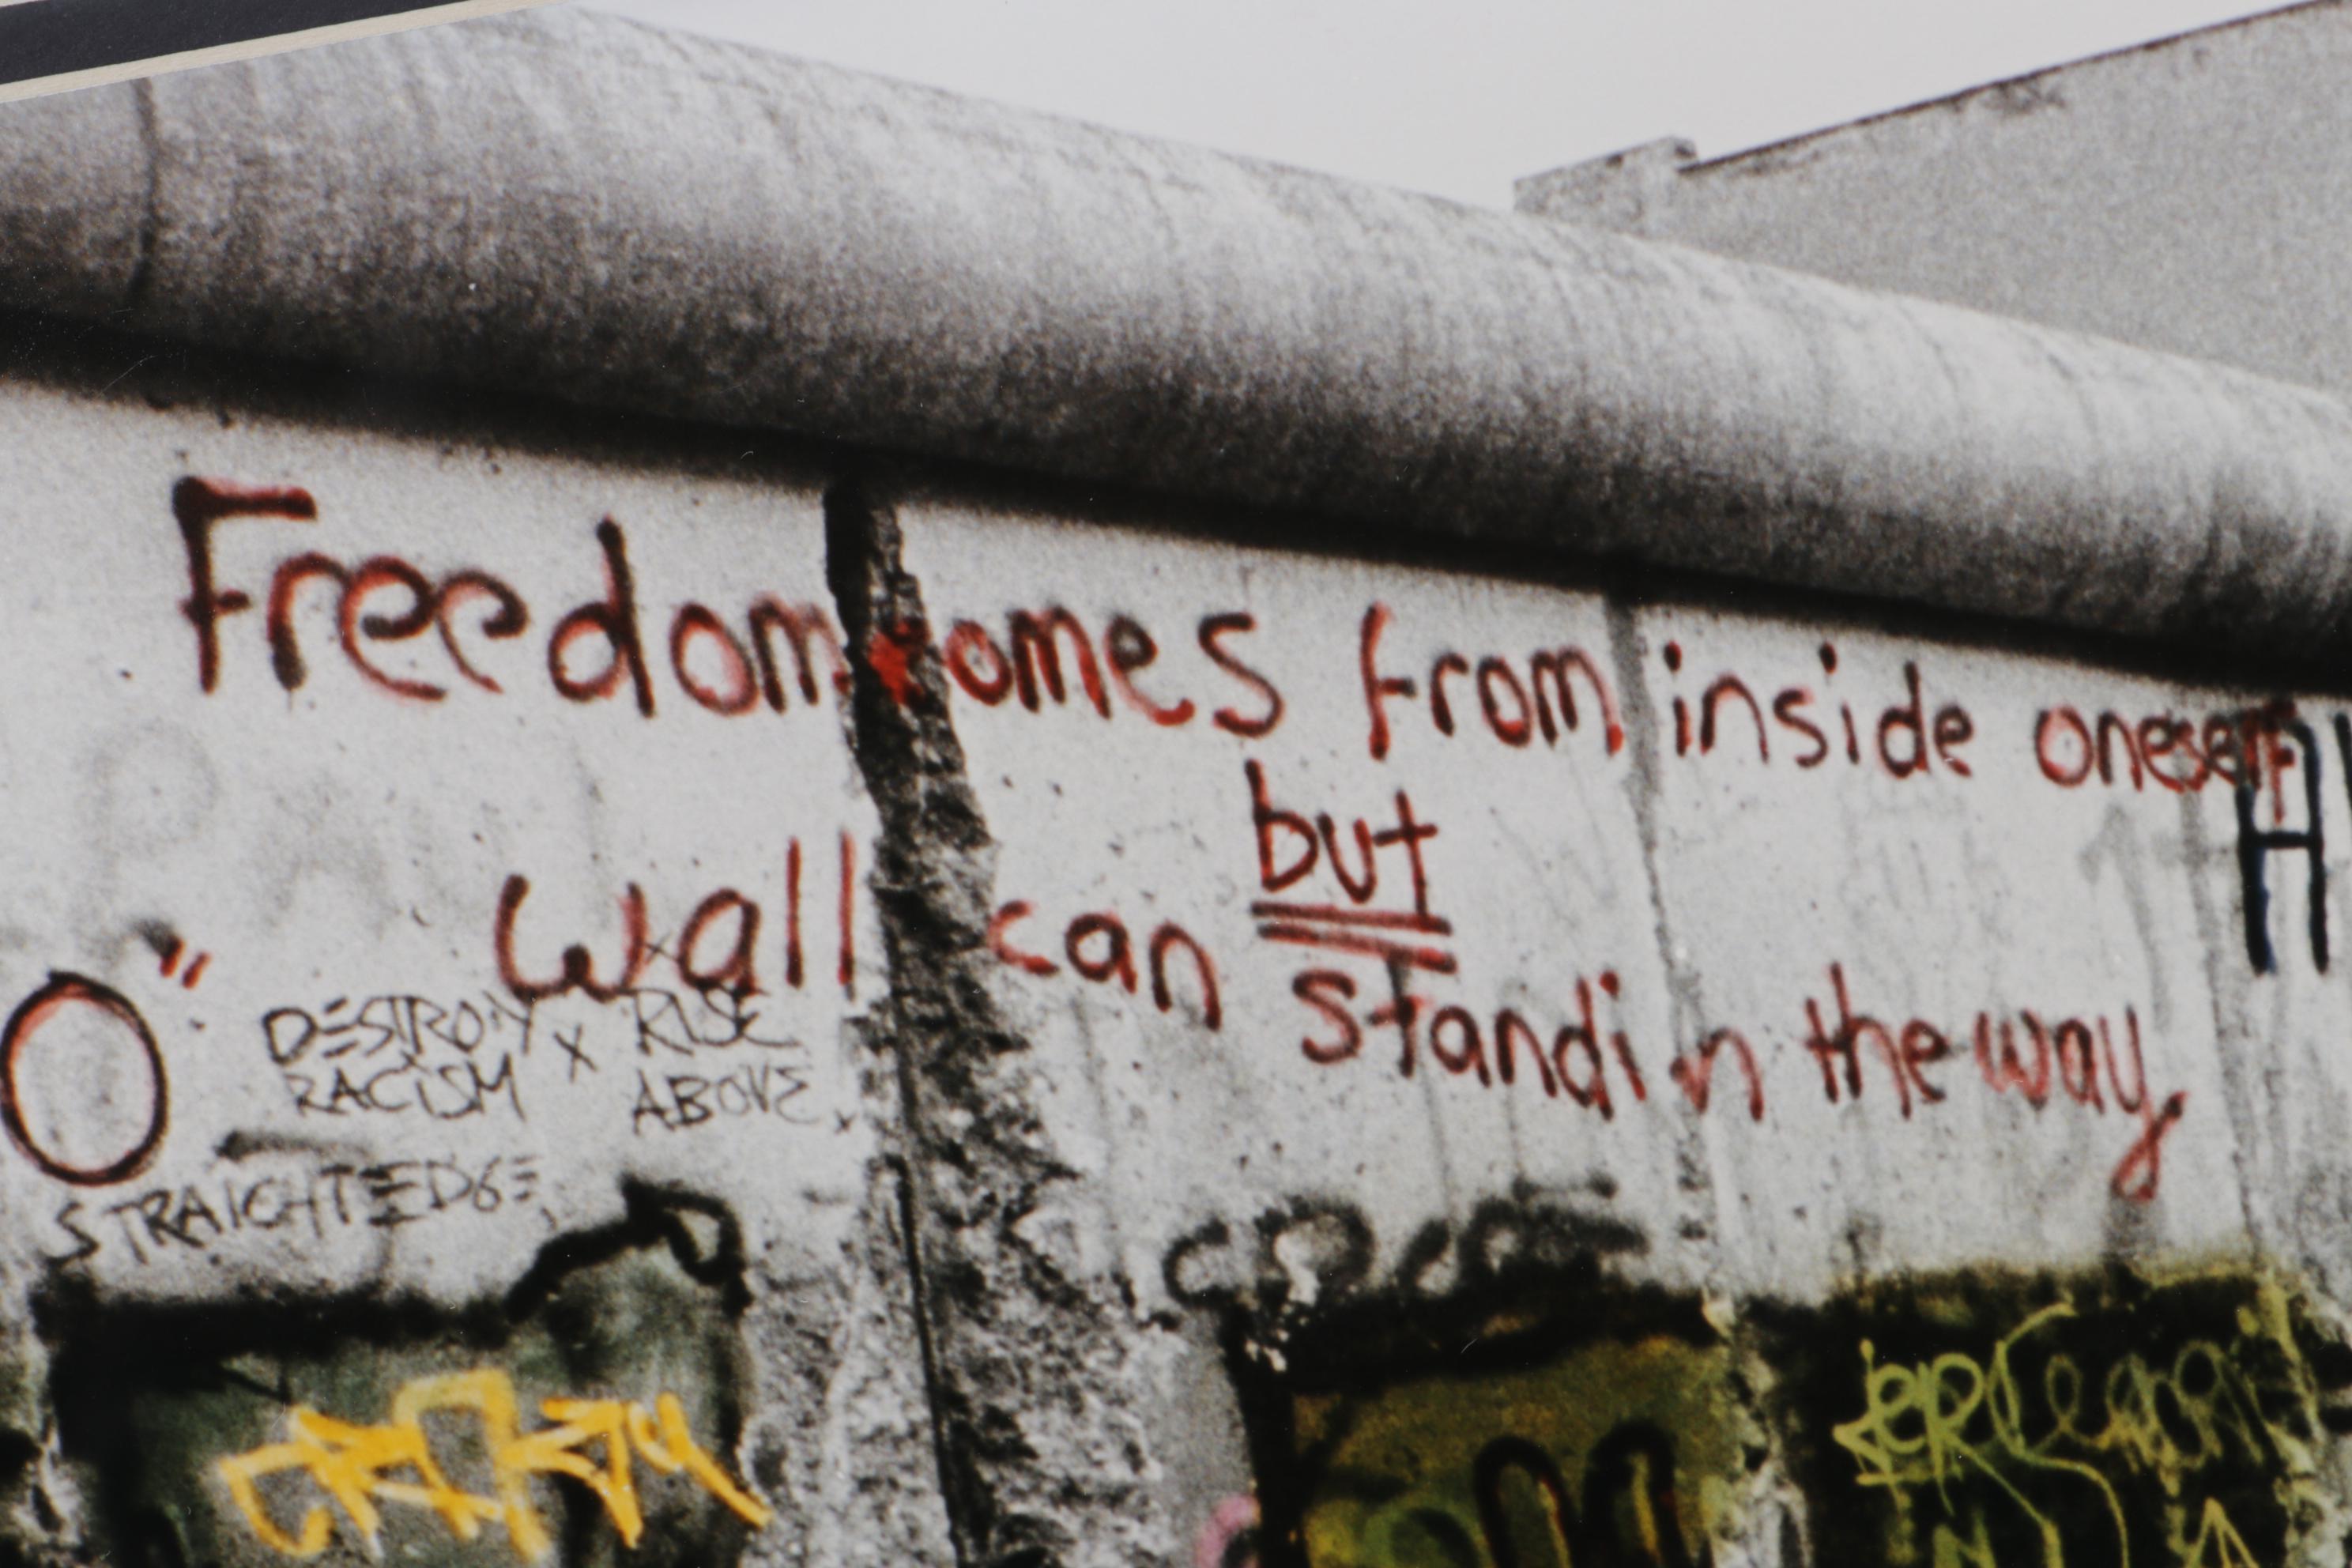 Freedom comes from inside oneself
but
wall can stand in the way,
O"
DESTROY X RISE
RACISM ABOVE
STRAIGHTEDGE
H